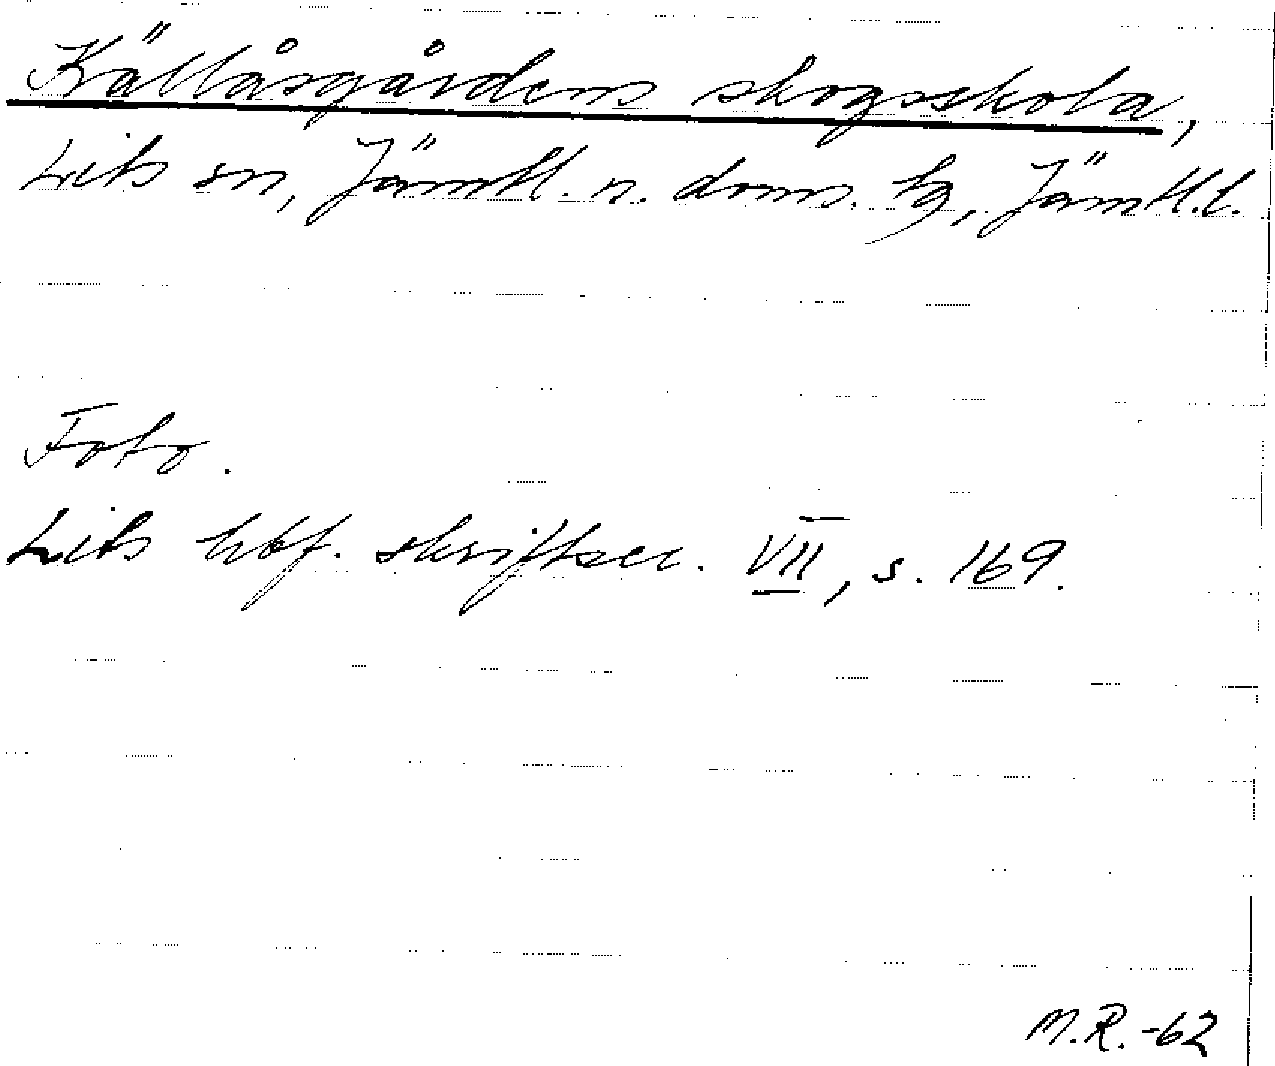 Källåsgårdens skogsskola,
Lits sn, Jämtl. n. doms. tg, Jämtl.l.
Foto.
Lits hbf. skriftser. VII, s. 169.
M.R. -62